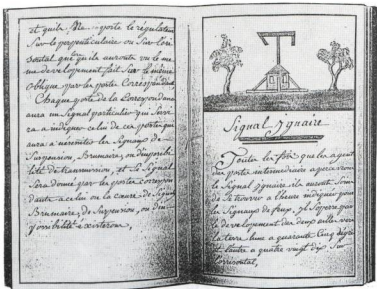 et qu'ils ne porte le régulateur
Sur le perpendiculaire ou Sur l'ori-
sontal que qu'ils auront vu le mê-
me developement fait Sur le même
oblique par les postes Correspondants.
Chaque poste de la Correspondance
aura un Signal particulier qui Servi-
ra a indiquer celui de ces postes qui
aura a nécessité les Signaux de
Suspension, Brumaire, ou d'impossibi-
lité de transmission, et le Signal
Sera donné par les postes correspon-
dants a celui ou la cause de Signal
Brumaire, de Suspension, ou d'im-
possibilité existeront,
Signal Igniaire
Toutes les fois que les agents
des postes intermediaires appercevront
le Signal Igniaire, ils auront Soin
de Se trouver a l'heure indiquée pour
les Signaux de feux, Il Sopera par
le developement des deux ailes vers
la terre, l'une a quarante Cinq degrés
et l'autre a quatre vingt dix Sur
l'orisontal,